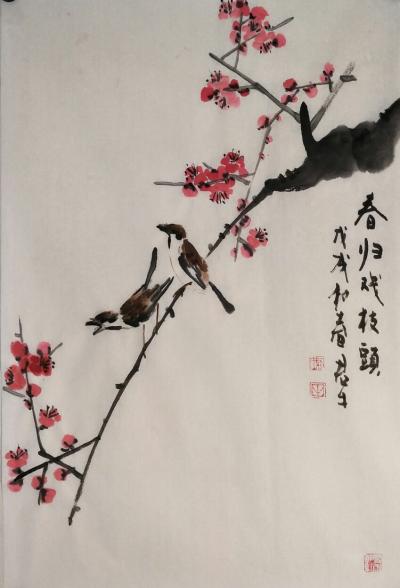 春归戏枝頭
戊戌初春晨牛